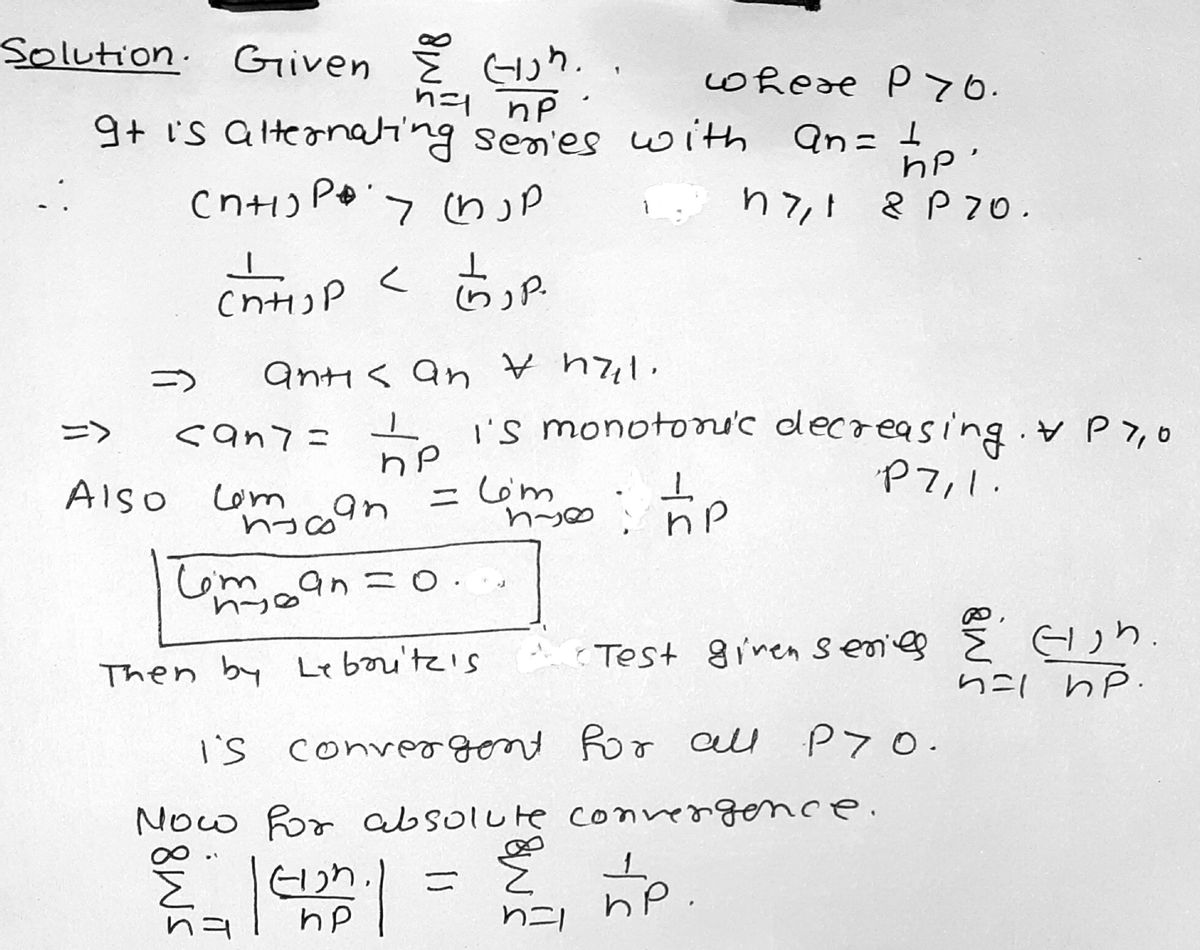 Solution. Given ∞Σn=1 (-1)^n / n^p . where P > 0.
It is alternating series with an = 1/n^p ,
∴ (n+1)^p > (n)^p n ≥ 1 & P > 0.
1/(n+1)^p < 1/(n)^p.
⇒ an+1 < an ∀ n ≥ 1.
⇒ <an> = 1/n^p is monotonic decreasing. ∀ P ≥ 0
P ≥ 1.
Also lim n→∞ an = lim n→∞ 1/n^p
lim n→∞ an = 0.
Then by Lebnitz's Test given series ∞Σn=1 (-1)^n / n^p.
is convergent for all P > 0.
Now for absolute convergence.
∞Σn=1 |(-1)^n / n^p| = ∞Σn=1 1/n^p.